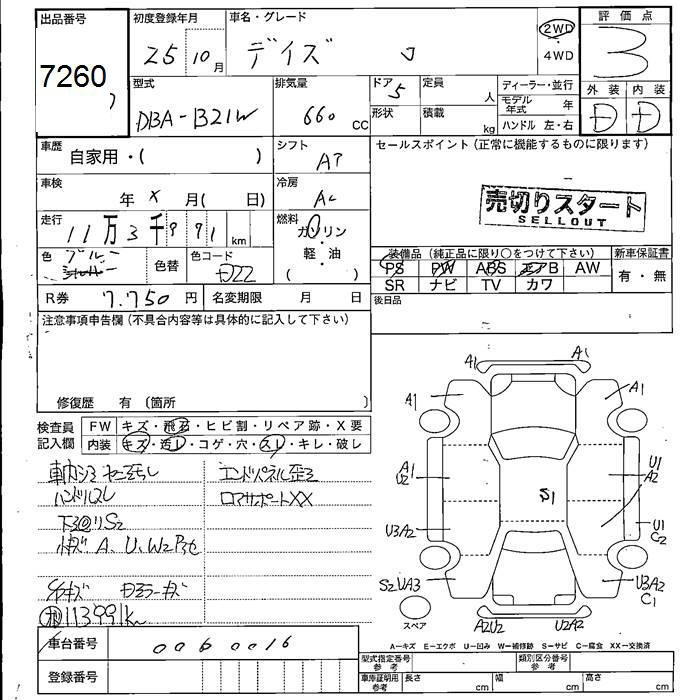 出品番号
7260
初度登録年月
25 10月
車名・グレード
デイズ J
2WD
4WD
評価点
3
外装 内装
D D
型式
DBA-B21W
排気量
660 CC
ドア 5
形状
定員 人
積載 kg
ディーラー・並行
モデル年式 年
ハンドル 左・右
車歴
自家用・( )
シフト
AT
セールスポイント(正常に機能するものに限ります)
売切りスタート
SELLOUT
車検
年 X 月( 日)
冷房
AC
走行
11万3千991 km
燃料
ガソリン
・
軽・油
( )
色
ブルー
シルバー
色替
色コード
装備品(純正品に限り○をつけて下さい)
新車保証書
PS PW ABS エアB AW
SR ナビ TV カワ
有・無
R券 7.750 円
名変期限 月 日
後日品
注意事項申告欄(不具合内容等は具体的に記入して下さい)
修復歴 有 〔箇所 〕
検査員
記入欄
FW キズ・飛石・ヒビ割・リペア跡・X要
内装 キズ・汚レ・コゲ・穴・スレ・キレ・破レ
ハンドルスレ
エンドパネル歪ミ
ロアサポートXX
113991km
A1 A1
A1 A1
A1 U2
U1 A2
S1
U3A2
U1 C2
S2UA3
U3A2 C1
スペア
A2U2 U2A2
A−キズ E−エクボ U−凹み W−補修跡 S−サビ C−腐食 XX−交換済
車台番号
0060016
登録番号
型式指定番号
参考
類別区分番号
参考
車庫証明用
参考
長さ cm
幅 cm
高さ cm